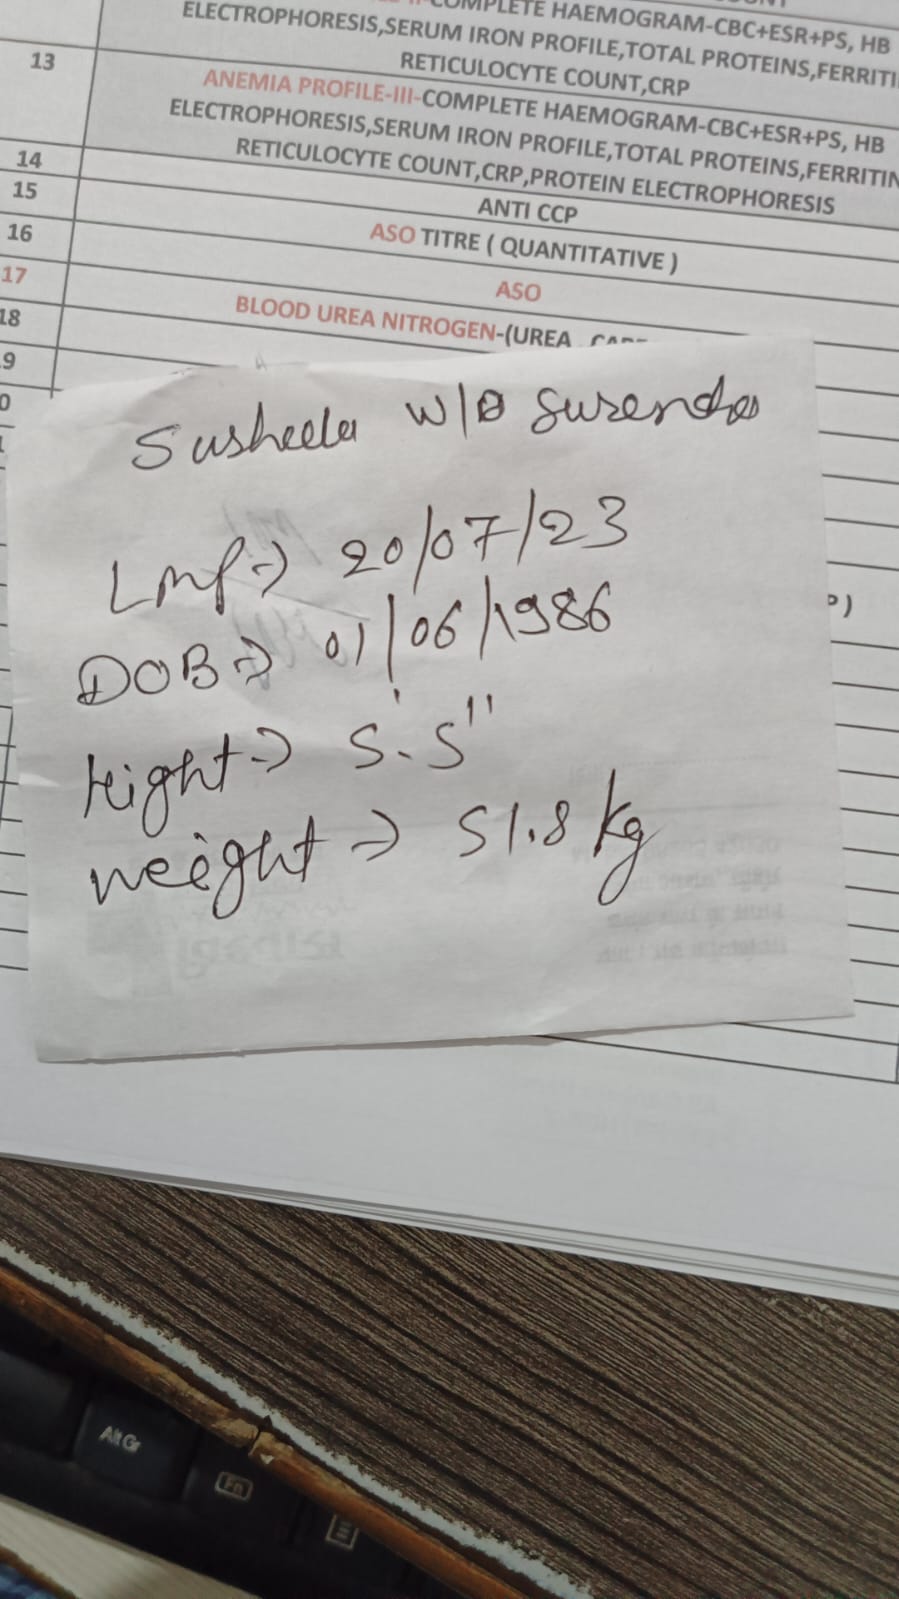 COMPLETE HAEMOGRAM-CBC+ESR+PS, HB
ELECTROPHORESIS,SERUM IRON PROFILE,TOTAL PROTEINS,FERRITI
RETICULOCYTE COUNT,CRP
13 ANEMIA PROFILE-III-COMPLETE HAEMOGRAM-CBC+ESR+PS, HB
ELECTROPHORESIS,SERUM IRON PROFILE,TOTAL PROTEINS,FERRITIN
RETICULOCYTE COUNT,CRP,PROTEIN ELECTROPHORESIS
14 ANTI CCP
15 ASO TITRE ( QUANTITATIVE )
16 ASO
17 BLOOD UREA NITROGEN-(UREA
18
9
0
Susheela W/O Surendra
LMP→ 20/07/23
DOB→ 01/06/1986
Hight→ 5'.5''
weight→ 51.8 kg
Alt Gr
Fn